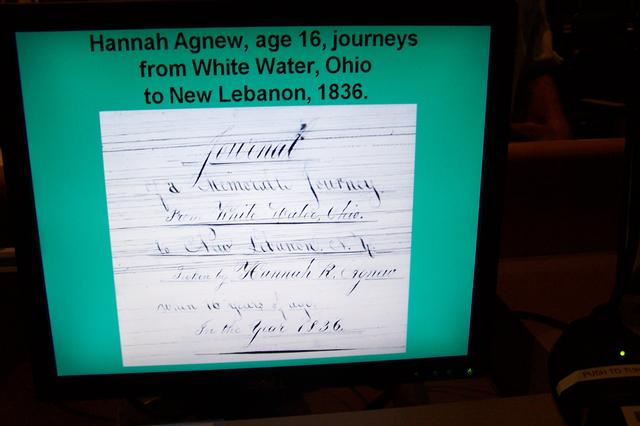 Hannah Agnew, age 16, journeys
from White Water, Ohio
to New Lebanon, 1836.
Journal
of a Memorable Journey.
From White Water, Ohio.
to New Lebanon. N. Y.
Taken by Hannah R. Agnew
when 16 years of age.
In the Year 1836.
PUSH TO